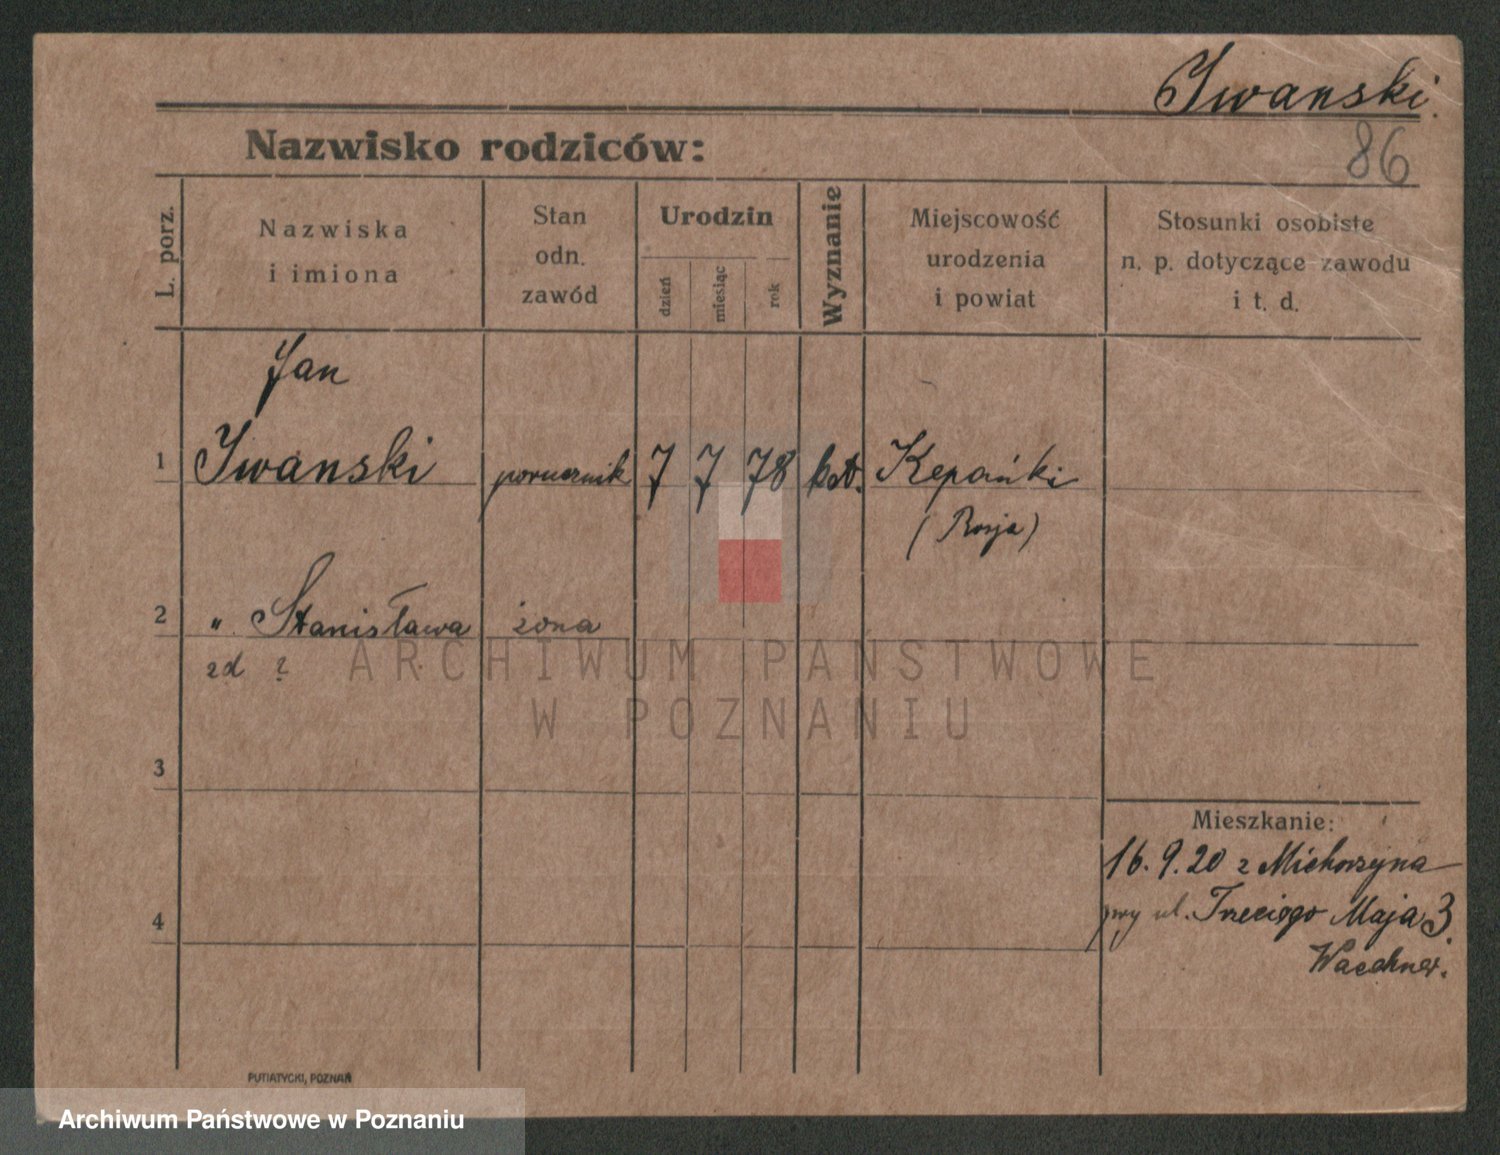 Iwanski.
86
Nazwisko rodziców:
L. porz.
Nazwiska
i imiona
Stan
odn.
zawód
Urodzin
dzień
miesiąc
rok
Wyznanie
Miejscowość
urodzenia
i powiat
Stosunki osobiste
n. p. dotyczące zawodu
i t. d.
Jan
1 Iwanski porucznik 7 7 78 kat.
(Rosja)
2 " Stanisława żona
zd ?
ARCHIWUM PAŃSTWOWE
W POZNANIU
3
Mieszkanie:
16.9.20 z Michorzyna
przy ul. Trzeciego Maja 3.
4
PUTIATYCKI, POZNAŃ
Archiwum Państwowe w Poznaniu